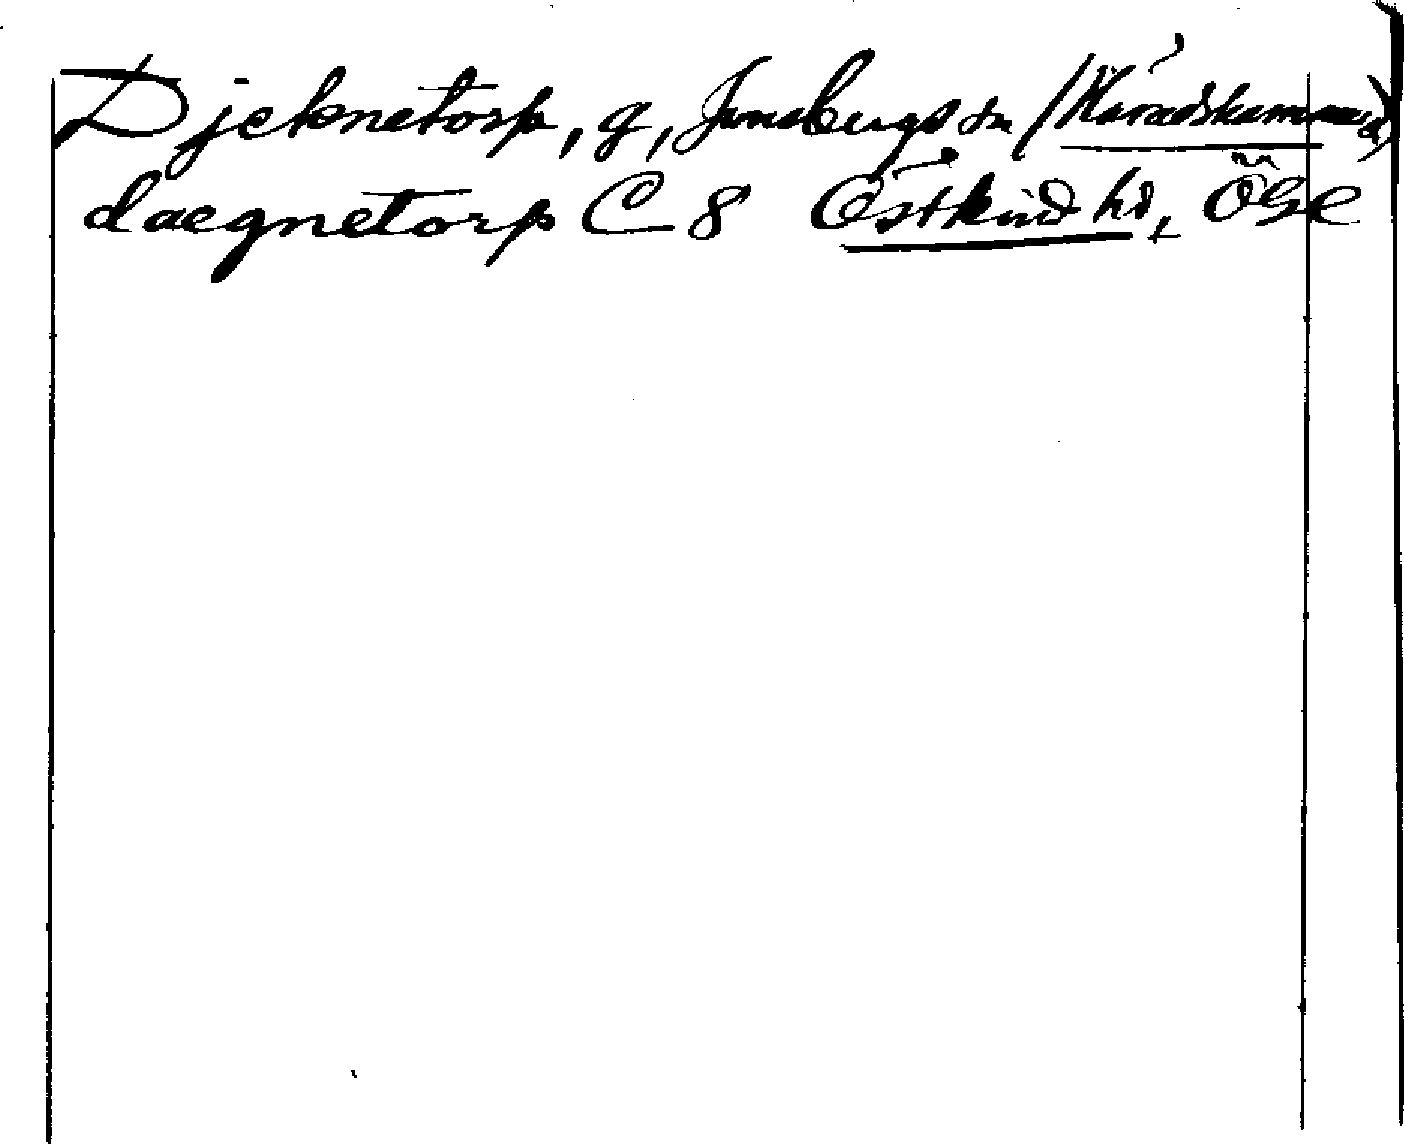 Djeknetorp, g, Jonsbergs sn (Häradshammar)
daegnetorp C 8 Östkind hd, ÖGL